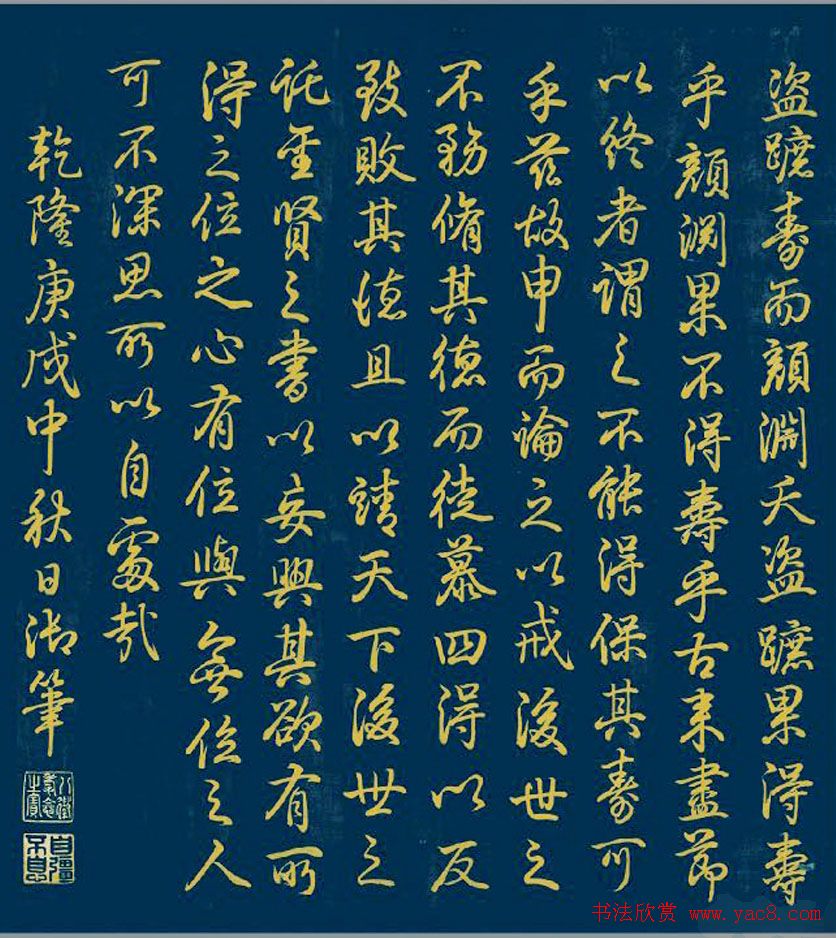 盗蹠壽而顔淵夭盗蹠果得壽
乎顔淵果不得壽乎古来盡節
以終者謂之不能得保其壽可
乎兹故申而論之以戒後世之
不務脩其德而徒慕四得以反
致敗其德且以靖天下後世之
託聖賢之書以妄興其欲有所
得之位之心有位與無位之人
可不深思所以自處哉
乾隆庚戌中秋日御筆
八徵耄念之寶
自彊不息
书法欣赏 www.yac8.com